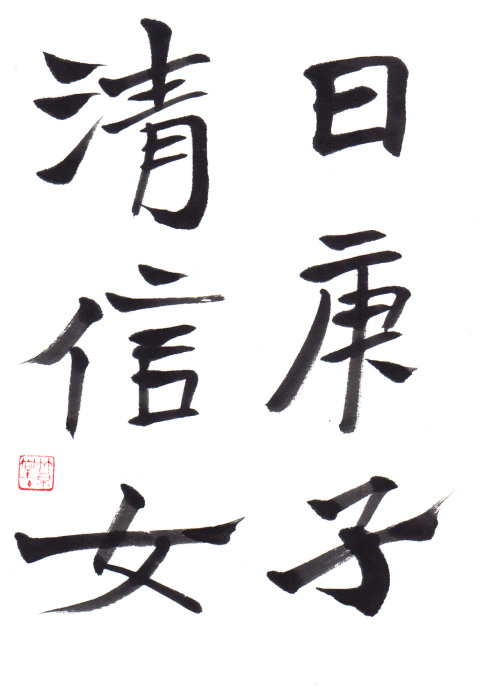 日庚子
清信女